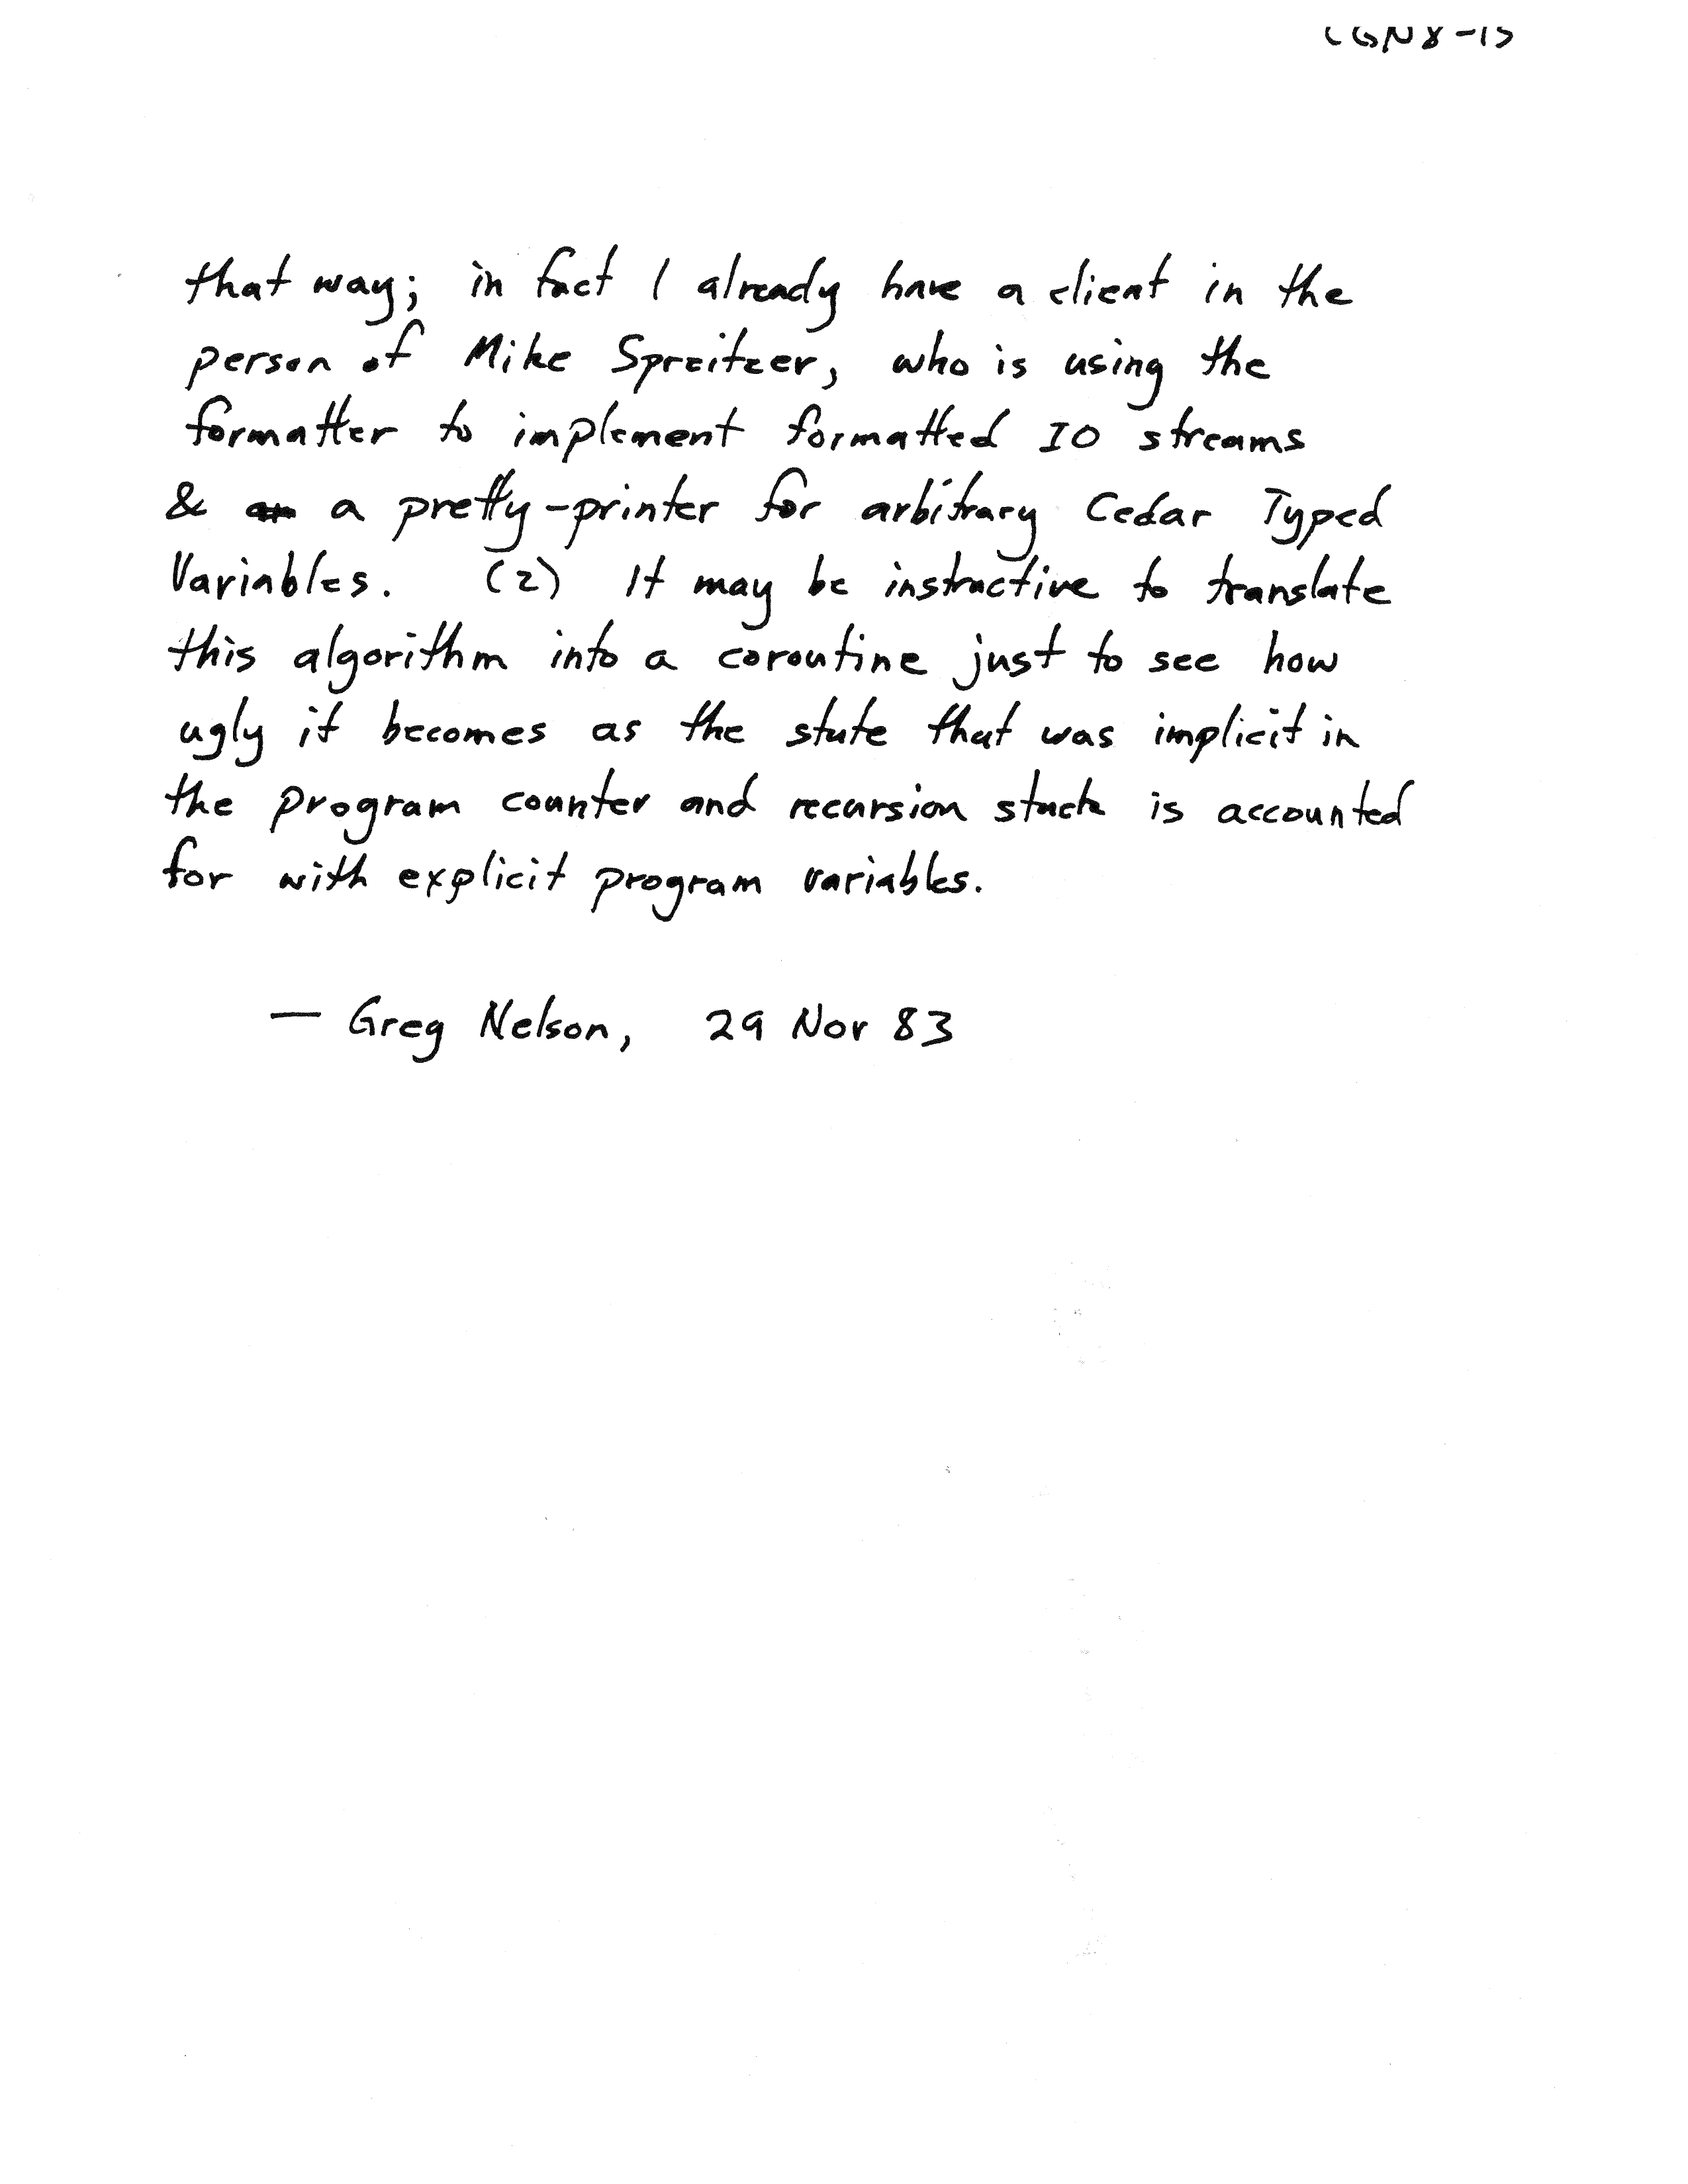 that way; in fact I already have a client in the
person of Mike Spreitzer, who is using the
formatter to implement formatted IO streams
& a pretty-printer for arbitrary Cedar Typed
Variables. (2) It may be instructive to translate
this algorithm into a coroutine just to see how
ugly it becomes as the state that was implicit in
the program counter and recursion stack is accounted
for with explicit program variables.
— Greg Nelson, 29 Nov 83